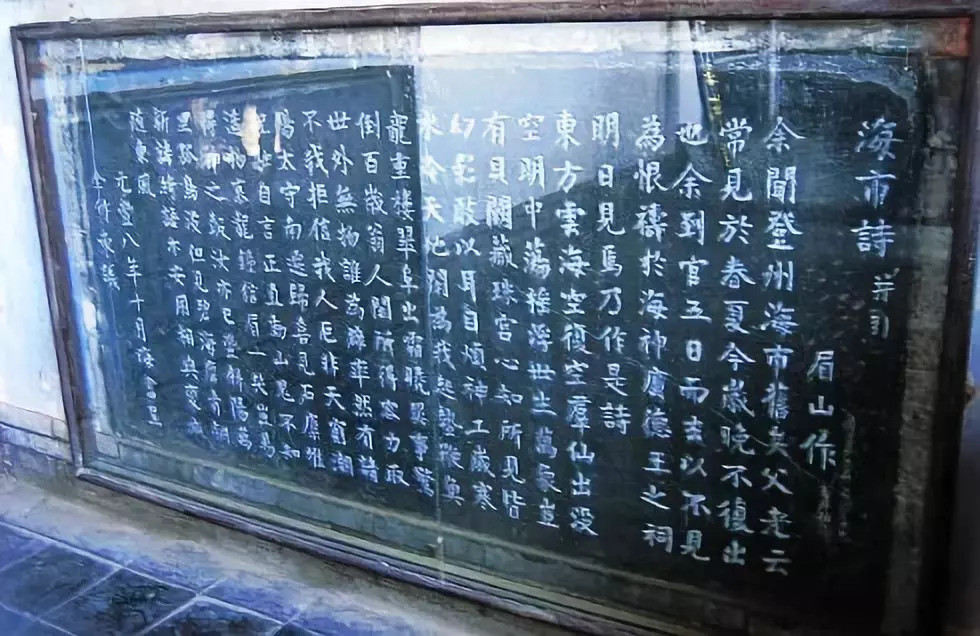 海市詩并引
眉山作
余聞登州海市舊矣父老云
常見於春夏今歲晚不復出
也余到官五日而去以不見
為恨禱於海神廣德王之祠
明日見焉乃作是詩
東方雲海空復空羣仙出没
空明中蕩搖浮世生萬象豈
有貝闕藏珠宮心知所見皆
幻影敢以耳目煩神工歲寒
水冷天地閉為我起蟄鞭魚
龍重樓翠阜出霜曉異事驚
倒百歲翁人間所得容力取
世外無物誰為雄率然有請
不我拒信我人厄非天窮潮
陽太守南遷歸喜見石廩堆
自言正直動山鬼不知
造物哀龍鍾信眉一笑豈易
得神之報汝亦已豐斜陽萬
里孤鳥没但見碧海磨青銅
新詩綺語亦安用相與變滅
隨東風
元豐八年十月晦書呈
全承議